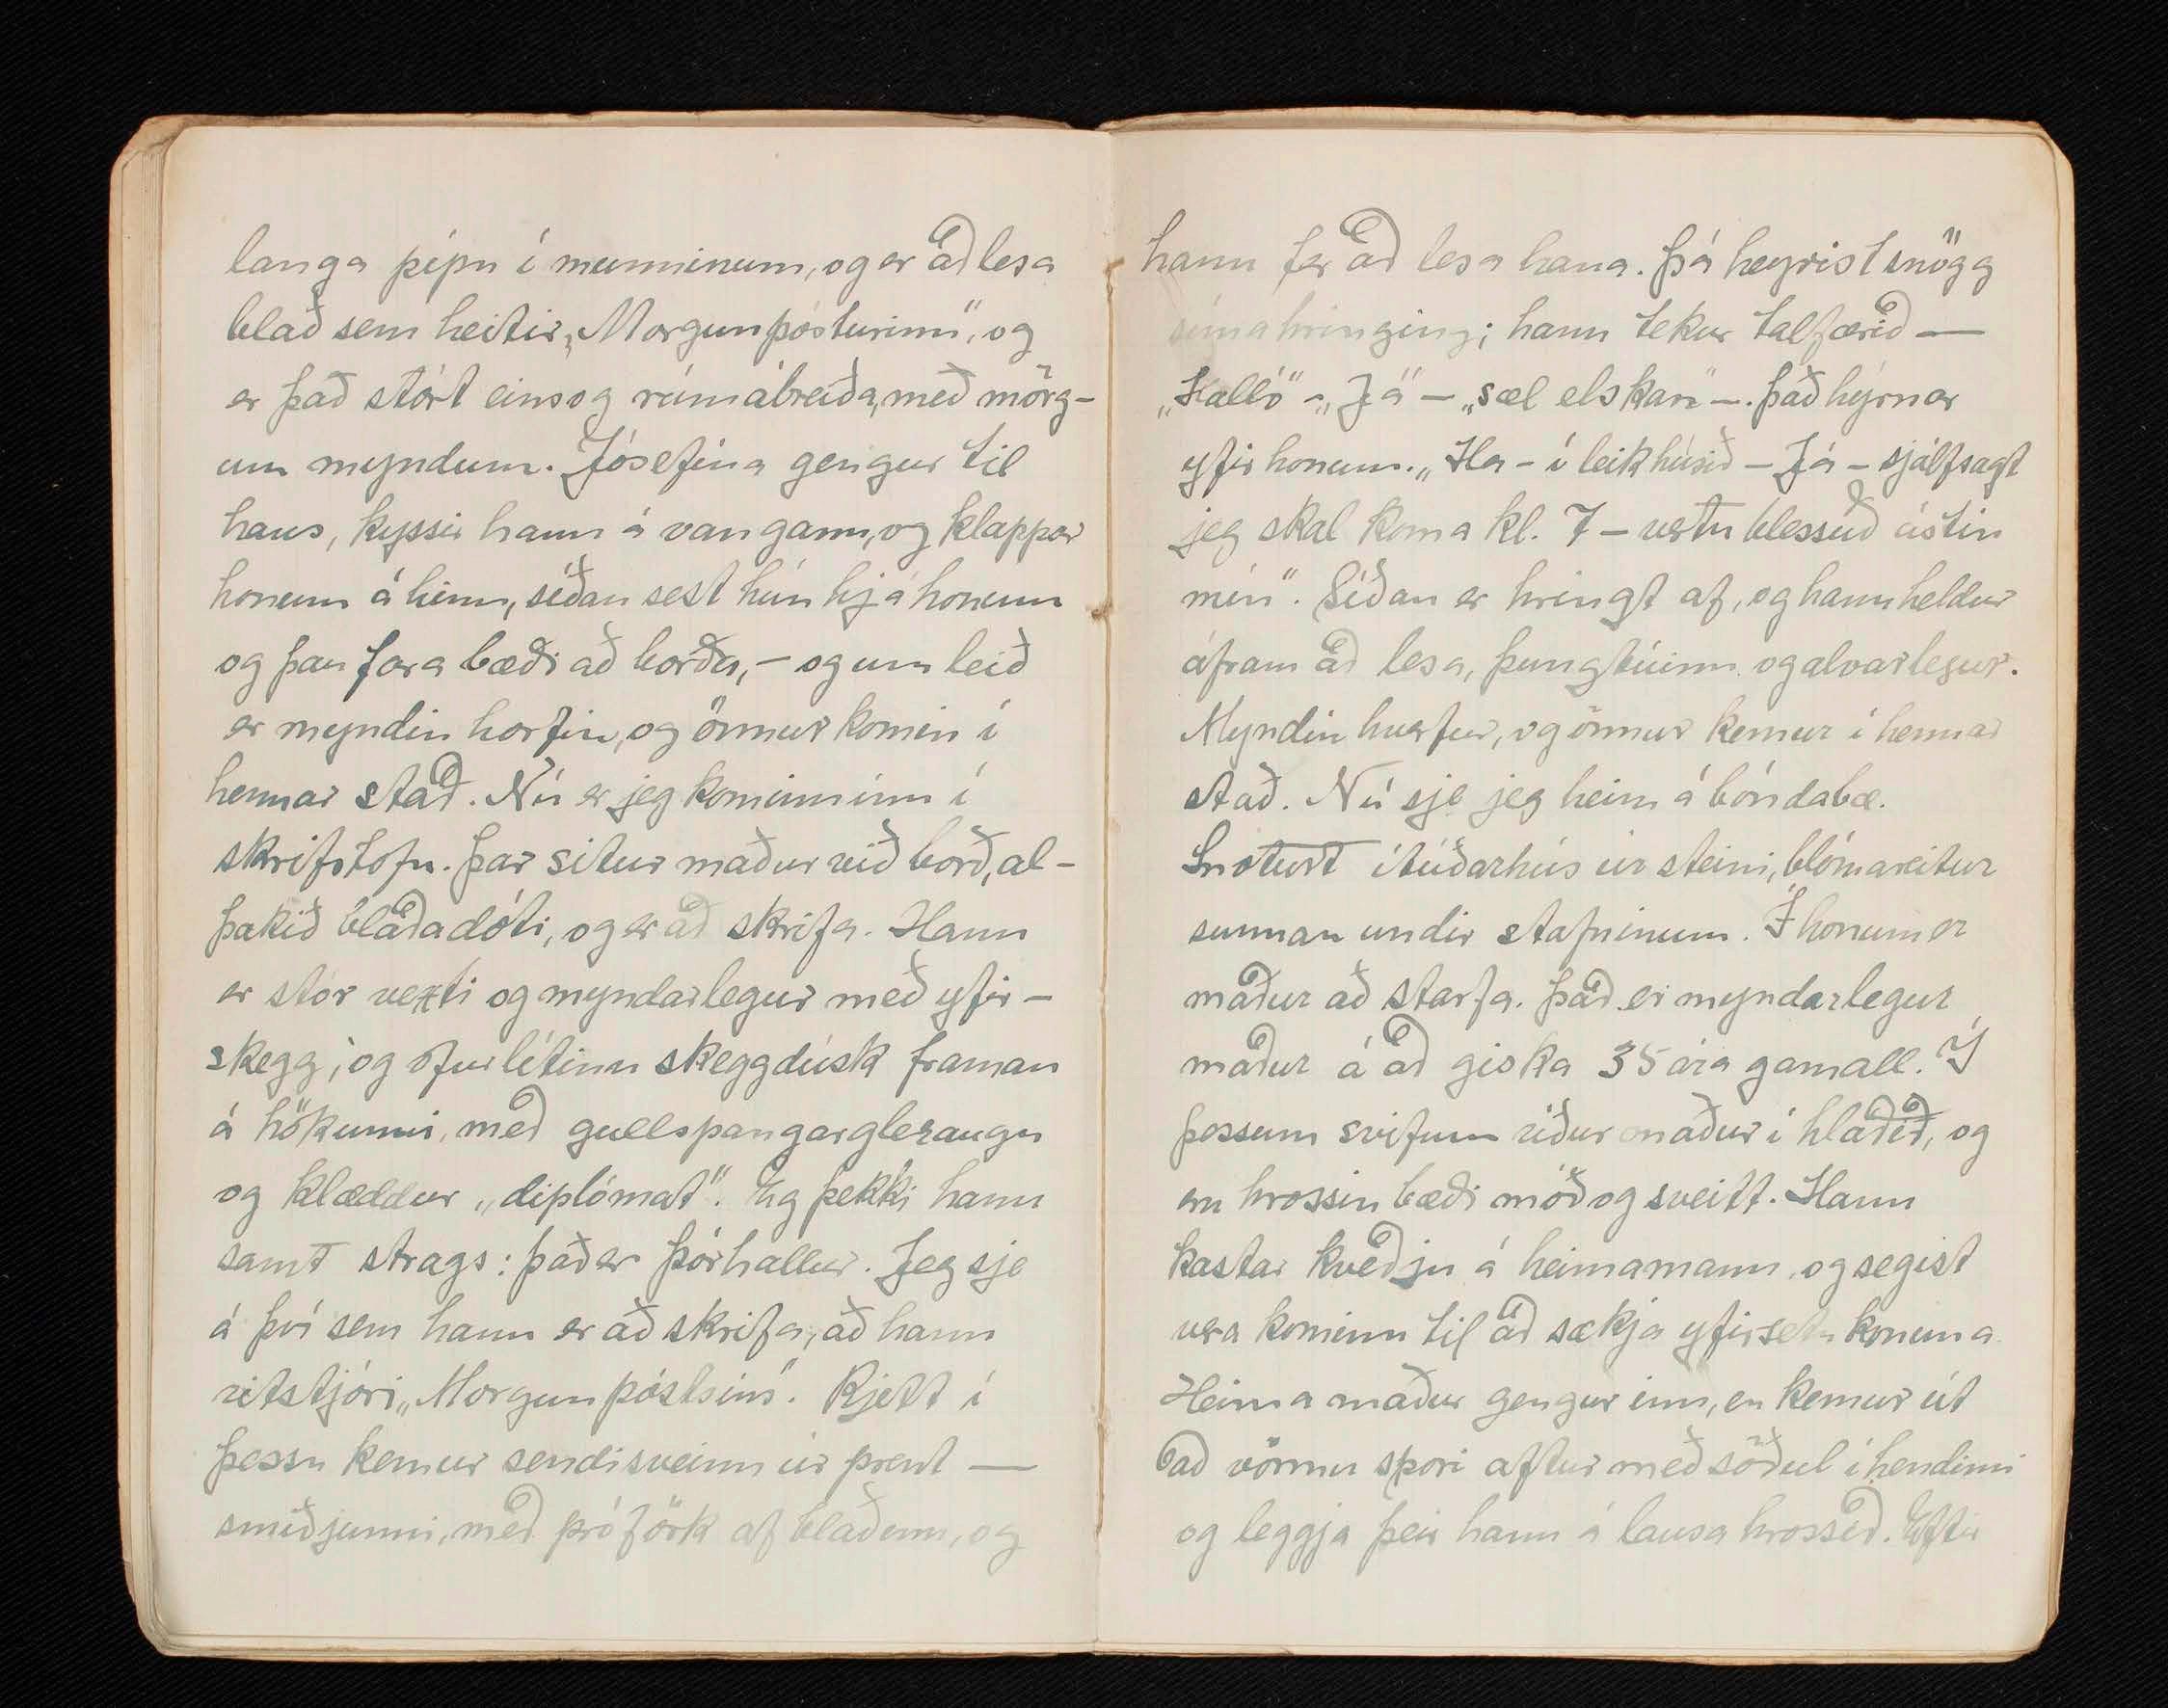 langa pípu í munninum, og er að lesa
blað sem heitir „Morgunpósturinn", og
er það stórt eins og rúmábreiða, með mörg-
um myndum. Jósefína gengur til
hans, kyssir hann á vangann, og klappar
honum á hinn, síðan sest hún hjá honum
og þau fara bæði að borða, - og um leið
er myndin horfin, og önnur komin í
hennar stað. Nú er jeg kominn inn í
skrifstofu. Þar situr maður við borð, al-
þakið blaðadóti, og er að skrifa. Hann
er stór vexti og myndarlegur með yfir-
skegg, og ofurlítinn skeggdúsk framan
á hökunni, með gullspangargleraugu
og klæddur „diplómat". Eg þekki hann
samt strags: það er Þórhallur. Jeg sje
á því sem hann er að skrifa, að hann
ritstjóri „Morgunpóstsins". Rjett í
þessu kemur sendisveinn úr prent-
smiðjunni, með próförk af blaðinu, og
hann fer að lesa hana. Þá heyrist snögg
símahringing; hann tekur talfærið —
„Halló" - „Já" - „sæl elskan" -. Það hýrnar
yfir honum. „Ha - í leikhúsið - Já - sjálfsagt
jeg skal koma kl. 7 - vertu blessuð ástin
mín". Síðan er hringt af, og hann heldur
áfram að lesa, þungbúinn og alvarlegur.
Myndin hverfur, og önnur kemur í hennar
stað. Nú sje jeg heim á bóndabæ.
Snoturt íbúðarhús úr steini, blómareitur
sunnan undir stafninum. Í honum er
maður að starfa. Það er myndarlegur
maður á að giska 35 ára gamall. Í
þessum svifum ríður maður í hlaðið, og
eru hrossin bæði móð og sveitt. Hann
kastar kveðju á heimamann og segist
vera kominn til að sækja yfirsetukonuna
Heimamaður gengur inn, en kemur út
að vörmu spori aftur með söðul í hendinni
og leggja þeir hann á lausa hrossið. Eftir